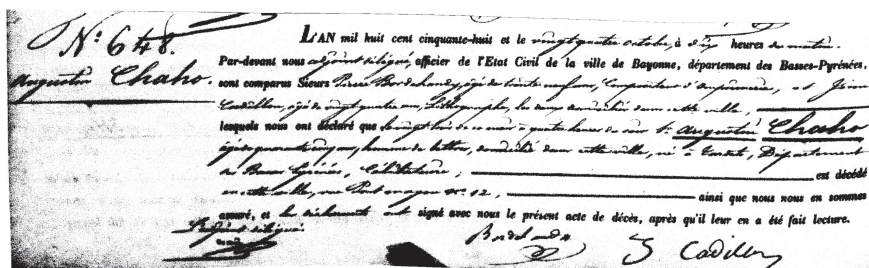 N.º 648.
Augustin Chaho.
L'AN mil huit cent cinquante-huit et le vingt quatre octobre, à dix heures du matin.
Par-devant nous adjoint délégué, officier de l'Etat Civil de la ville de Bayonne, département des Basses-Pyrénées,
sont comparus Sieurs Pierre âgé de trente neuf ans, Compositeur d'imprimerie, et
Cadillon, âgé de vingt quatre ans, Lithographe, les deux domiciliés dans cette ville,
lesquels nous ont déclaré que le vingt trois de ce mois à quatre heures du soir Sr. Augustin Chaho
âgé de quarante cinq ans, homme de lettres, domicilié dans cette ville, né à Tardets, Département
des Basses Pyrénées, Célibataire, est décédé
en cette ville, rue Pont mayou nº 12, ainsi que nous nous en sommes
assuré, et les déclarants ont signé avec nous le présent acte de décès, après qu'il leur en a été fait lecture.
L'adjoint délégué
S. Cadillon